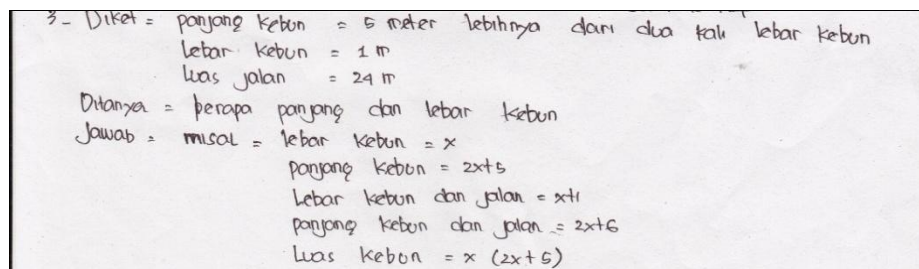 3- Diket = panjang kebun = 5 meter lebihnya dari dua kali lebar kebun
Lebar kebun = 1 m
Luas jalan = 24 m
Ditanya = berapa panjang dan lebar kebun
Jawab = misal = lebar kebun = x
panjang kebun = 2x+5
Lebar kebun dan jalan = x+1
panjang kebun dan jalan = 2x+6
Luas kebon = x (2x+5)